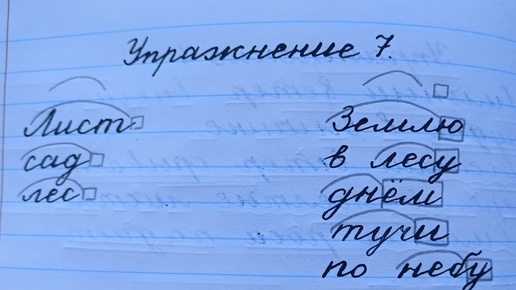 Упражнение 7.
Лист
сад
лес
Землю
в лесу
днём
тучи
по небу